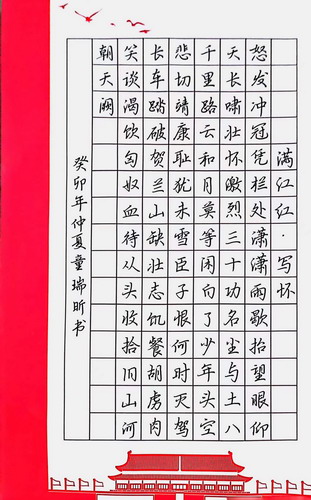 满红红·写怀
怒发冲冠凭栏处潇潇雨歇抬望眼仰
天长啸壮怀激烈三十功名尘与土八
千里路云和月莫等闲白了少年头空
悲切靖康耻犹未雪臣子恨何时灭驾
长车踏破贺兰山缺壮志饥餐胡虏肉
笑谈渴饮匈奴血待从头收拾旧山河
朝天阙
癸卯年仲夏童瑞昕书